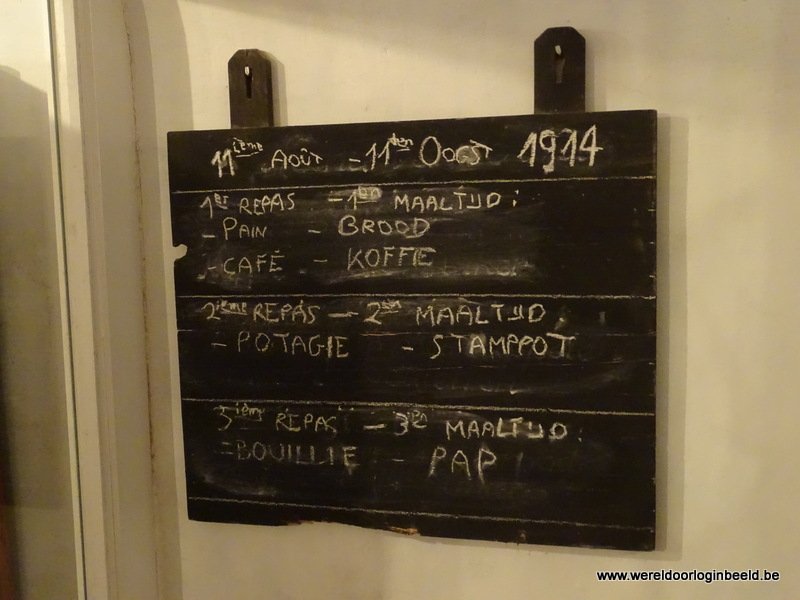 11ième AOÛT - 11den OOGST 1914
1er REPAS - 1en MAALTIJD :
- PAIN - BROOD
- CAFÉ - KOFFIE
2ieme REPAS - 2en MAALTIJD
- POTAGIE - STAMPPOT
3ième REPAS - 3ien MAALTIJD :
- BOUILLIE - PAP
www.wereldoorloginbeeld.be